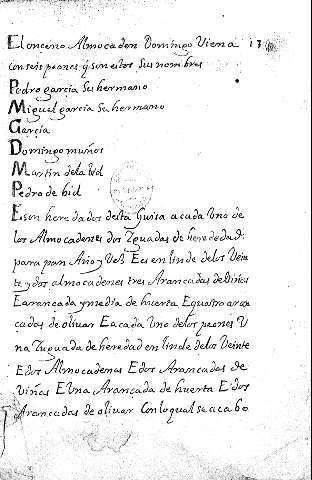 El onceno Almocaden Domingo Viena 13
con seis peones q̃ son estos sus nombres
Pedro garcia su hermano
Miguel garcia su hermano
Garcia
Domingo muños
Martin dela bid
Pedro de bid
E son heredados desta Guisa a cada Uno de
los Almocadenes dos Zguadas de heredad
para pan Año y Vez E es en linde delos Vein
te y dos almocadenes tres Arancadas de Viñas
E arancada y media de huerta E quatro aran
cadas de olivar E a cada Uno delos peones U
na Zuguada de heredad en linde delos Veinte
E dos Almocadenes E dos Arancadas de
viñas E Una Arancada de huerta E dos
Arancadas de olivar Con lo qual se acabo